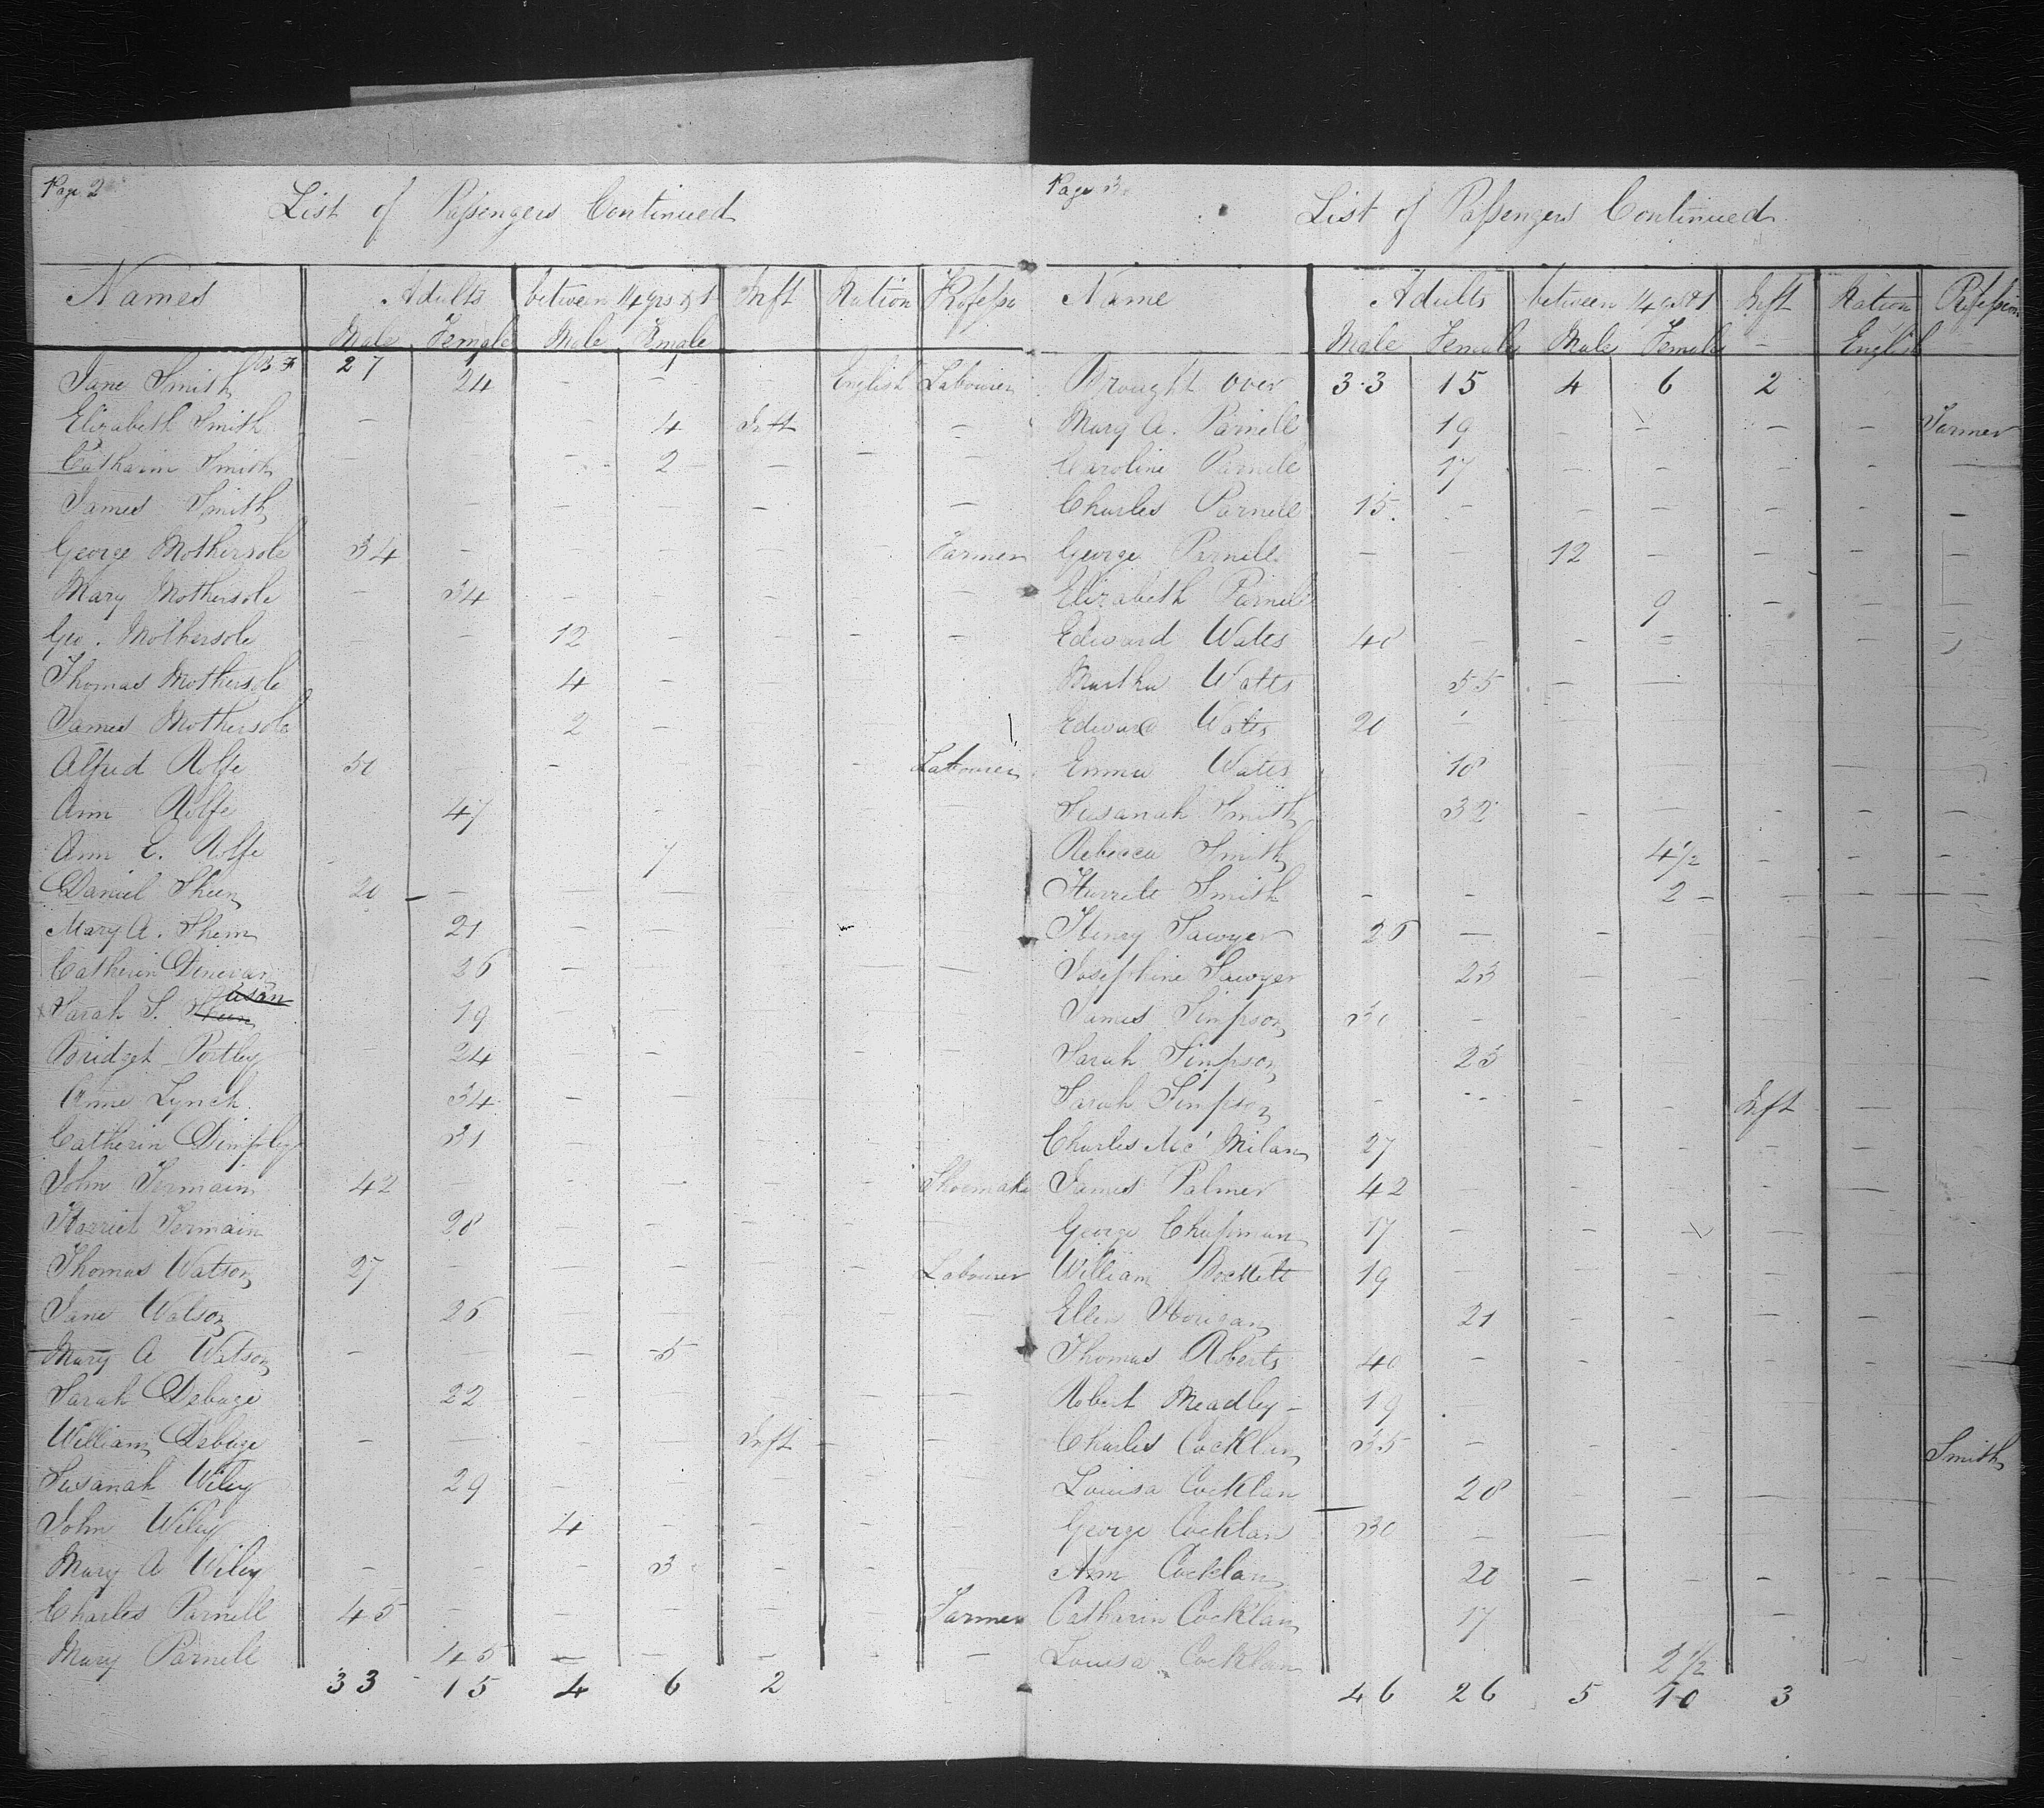 Page 2
List of Passengers Continued
Names Adults between 14 yrs & 1 Inft Nation Professn
Male Female Male Female
27 1 1
Jane Smith 24 - - - English Labourer
Elizabeth Smith - - - 4 Inft - -
Catharin Smith - - - 2 - - -
James Smith - - - - - -
George Mothersole 34 - - - - - Farmer
Mary Mothersole - 34 - - - - -
Geo. Mothersole - - 12 - - - -
Thomas Mothersole 4 - - - -
James Mothersole 2 - - - -
Alfred Rolfe 50 - - - - - Labourer
Ann Rolfe 47 - - - - -
Ann E. Rolfe - 7 - - -
Daniel Sheen 20 - - - - -
Mary A. Sheen 21 - - -
Catherin Donevan 26 - - - - -
Sarah S. 19 - -
Bridget Portley 24 - - - - -
Anne Lynch 34 - - - - -
Catherin Dimpley 31 - - - - -
John Jermain 42 - - - - - Shoemake
Harriet Jermain 28 - - - - -
Thomas Watson 27 - - - - - Labourer
Jane Watson 26 - - - - -
Mary A Watson - - - 5
Sarah Debage 22 - - - - -
William Debage - - - - Inft - -
Susanah Wiley 29 - - - - -
John Wiley 4 - - - -
Mary A Wiley - - - 3 - - -
Charles Parnell 45 - - - - - Farmer
Mary Parnell 45 - - - - -
33 15 4 6 2
Page 3
List of Passengers Continued
Name Adults between 14 yrs & 1 Inft Nation Profession
Male Female Male Female - English -
Brought over 33 15 4 6 2
Mary A. Parnell 19 - - - - Farmer
Caroline Parnell 17 - - - - -
Charles Parnell 15 - - - - - -
George Parnell - - 12 - - - -
Elizabeth Parnell 9 - - -
Edward Watts 48 - - - - - -
Martha Watts 55 - - - - -
Edward Watts 20 - - - - - -
Emma Watts 18 - - - - -
Susanah Smith 32 - - - - -
Rebecca Smith 4½ - - -
Harriete Smith - - 2 - - - -
Henry Sawyer 26 - - - - - -
Josephine Sawyer 23 - - - - -
James Simpson 30 - - - - - -
Sarah Simpson 23 - - - - -
Sarah Simpson - - - - Inft - -
Charles Mc Milan 27 - - - - -
James Palmer 42 - - - - -
George Chapman 17 - - - - - -
William Bockett 19 - - - - - -
Ellen Horigan 21 - - - - -
Thomas Roberts 40 - - - - - -
Robert Meadley - 19 - - - - - -
Charles Cocklan 35 - - - - - Smith
Louisa Cocklan 28 - - - - -
George Cocklan 30 - - - - - -
Ann Cocklan 20 - - - - -
Catherin Cocklan 17 - - - - -
Louisa Cocklan 2½ - -
46 26 5 10 3